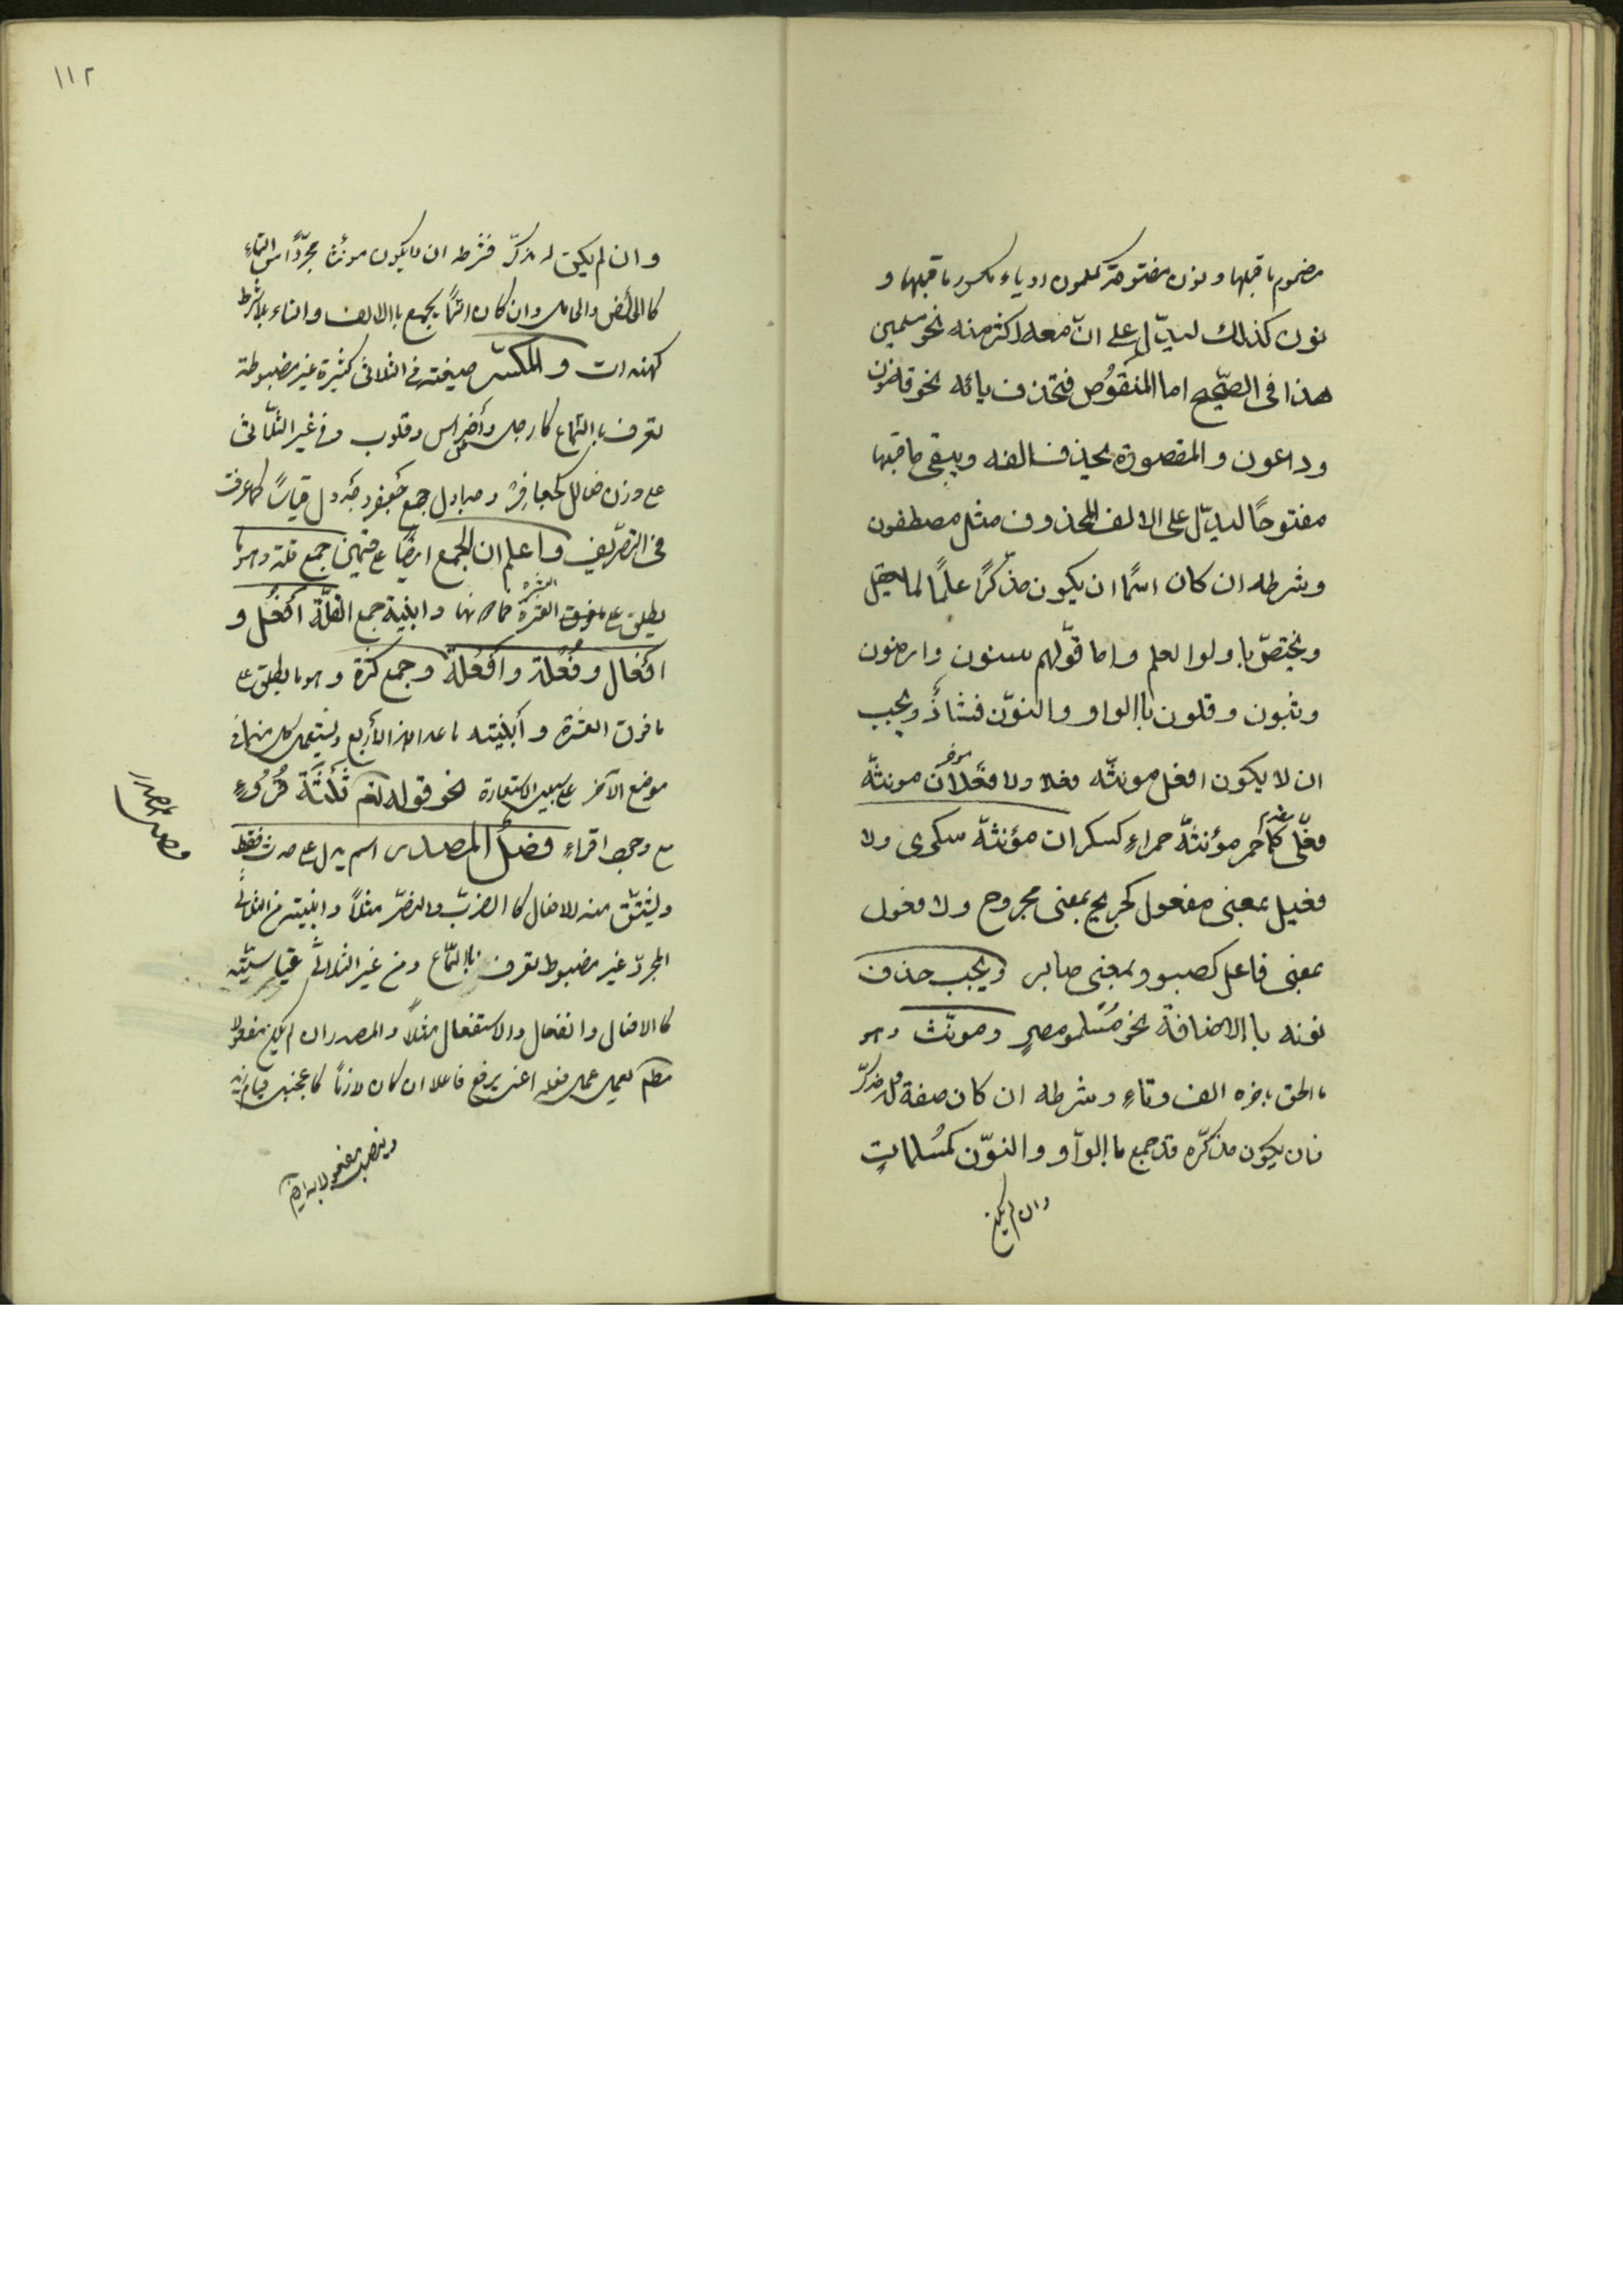 مضموم ما قبلها ونون مفتوحة كمسلمون او ياء مكسور ما قبلها و
نون كذلك ليدّل على انّ معه اكثر منه نحو مسلمين
هذا فى الصّحيح اما المنقُوص فتحذف يائه نحو قاضون
وداعون والمقصورة يحذف الفه ويبقى ما قبلها
مفتوحًا ليدّل على الالف المحذوف مثل مصطفون
وشرطه ان كان اسمًا ان يكون مذّكرًا علمًا لما يعقل
ويختصّ باولوا لعلم واما قوّلهم سنون وارضون
وثبون وقلون باالواو والنوّن فشاذّ ويجب
ان لا يكون افعل مونثّه فعلا ولا فعْلان مونثّه
فعْلى كما حمر مؤنثّه حمراءِ كسكران مؤنثّه سكرى ولا
فعيل بمعنى مفعول كجريح بمعنى مجروح ولا فعول
بمعنى فاعل كصبور بمعنى صابر ويجب حذف
نونه باالاضافة نحو مُسْلمو مصرٍ ومونّث وهو
ما الحق باخره الف وتاءٍ وشرطه ان كان صفة وله مذكرّ
فان يكون مذكرّه قد جمع باالوآو والنوّن كمُسْلماتٍ
وان لم يكن
١١٢
وان لم يكن له مذكرّ فشرطه ان لا يكون مونثا مجرّدًا من التاءِ
كالحائض والحامل وان كان اسمًا يجمع باالالف والتاء بلا شرط
كهندات والمكسّر صيغته فى الثلاثى كثيرة غير مضبوطة
تعرف باالسّماع كارجل وأضراس وقلوب وفى غير الثّلاثى
على وزن فعالل كجعافر وجداول جمع جعفر وجدول قياسًا كما عرفت
فى التصّريف واعلم ان الجمع ايضًا على قسمين جمع قلة وهو ما
يطلق على العشرة فما دونها وابنية جمع القلّة أفعُل و
أفعَال وفِعْلة وأفعِلة وجمع كثرة وهو ما يطلق على
ما فوق العشرة وأبنيته ما عدا هذه الأربع ويستعمل كل منهما فى
موضع الآخر على سبيل الاستعارة نحو قوله تعم ثلثَة قُرُوءٍ
مع وجود اقراءِ فصْل المصدر اسم يدل على حدث فقط
ويشتقّ منه الافعال كالضربّ والنصّر مثلاً وابنيته من الثلاثى
المجردّ غير مضبوط تعرف باالسّماع ومن غير الثلاثى قياسيّته
كالافعال وانفعال والاستفعال مثلاً والمصدر ان لم يكن مفعولا
مطلم يعمل عمل فعله اعنى يرفع فاعلا ان كان لازمًا كاعجبنى قيام زيد
وينصب مفعولا به ايضًا
فصل المصدر